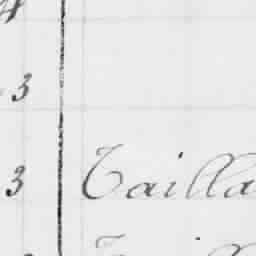 3
3 Tailla